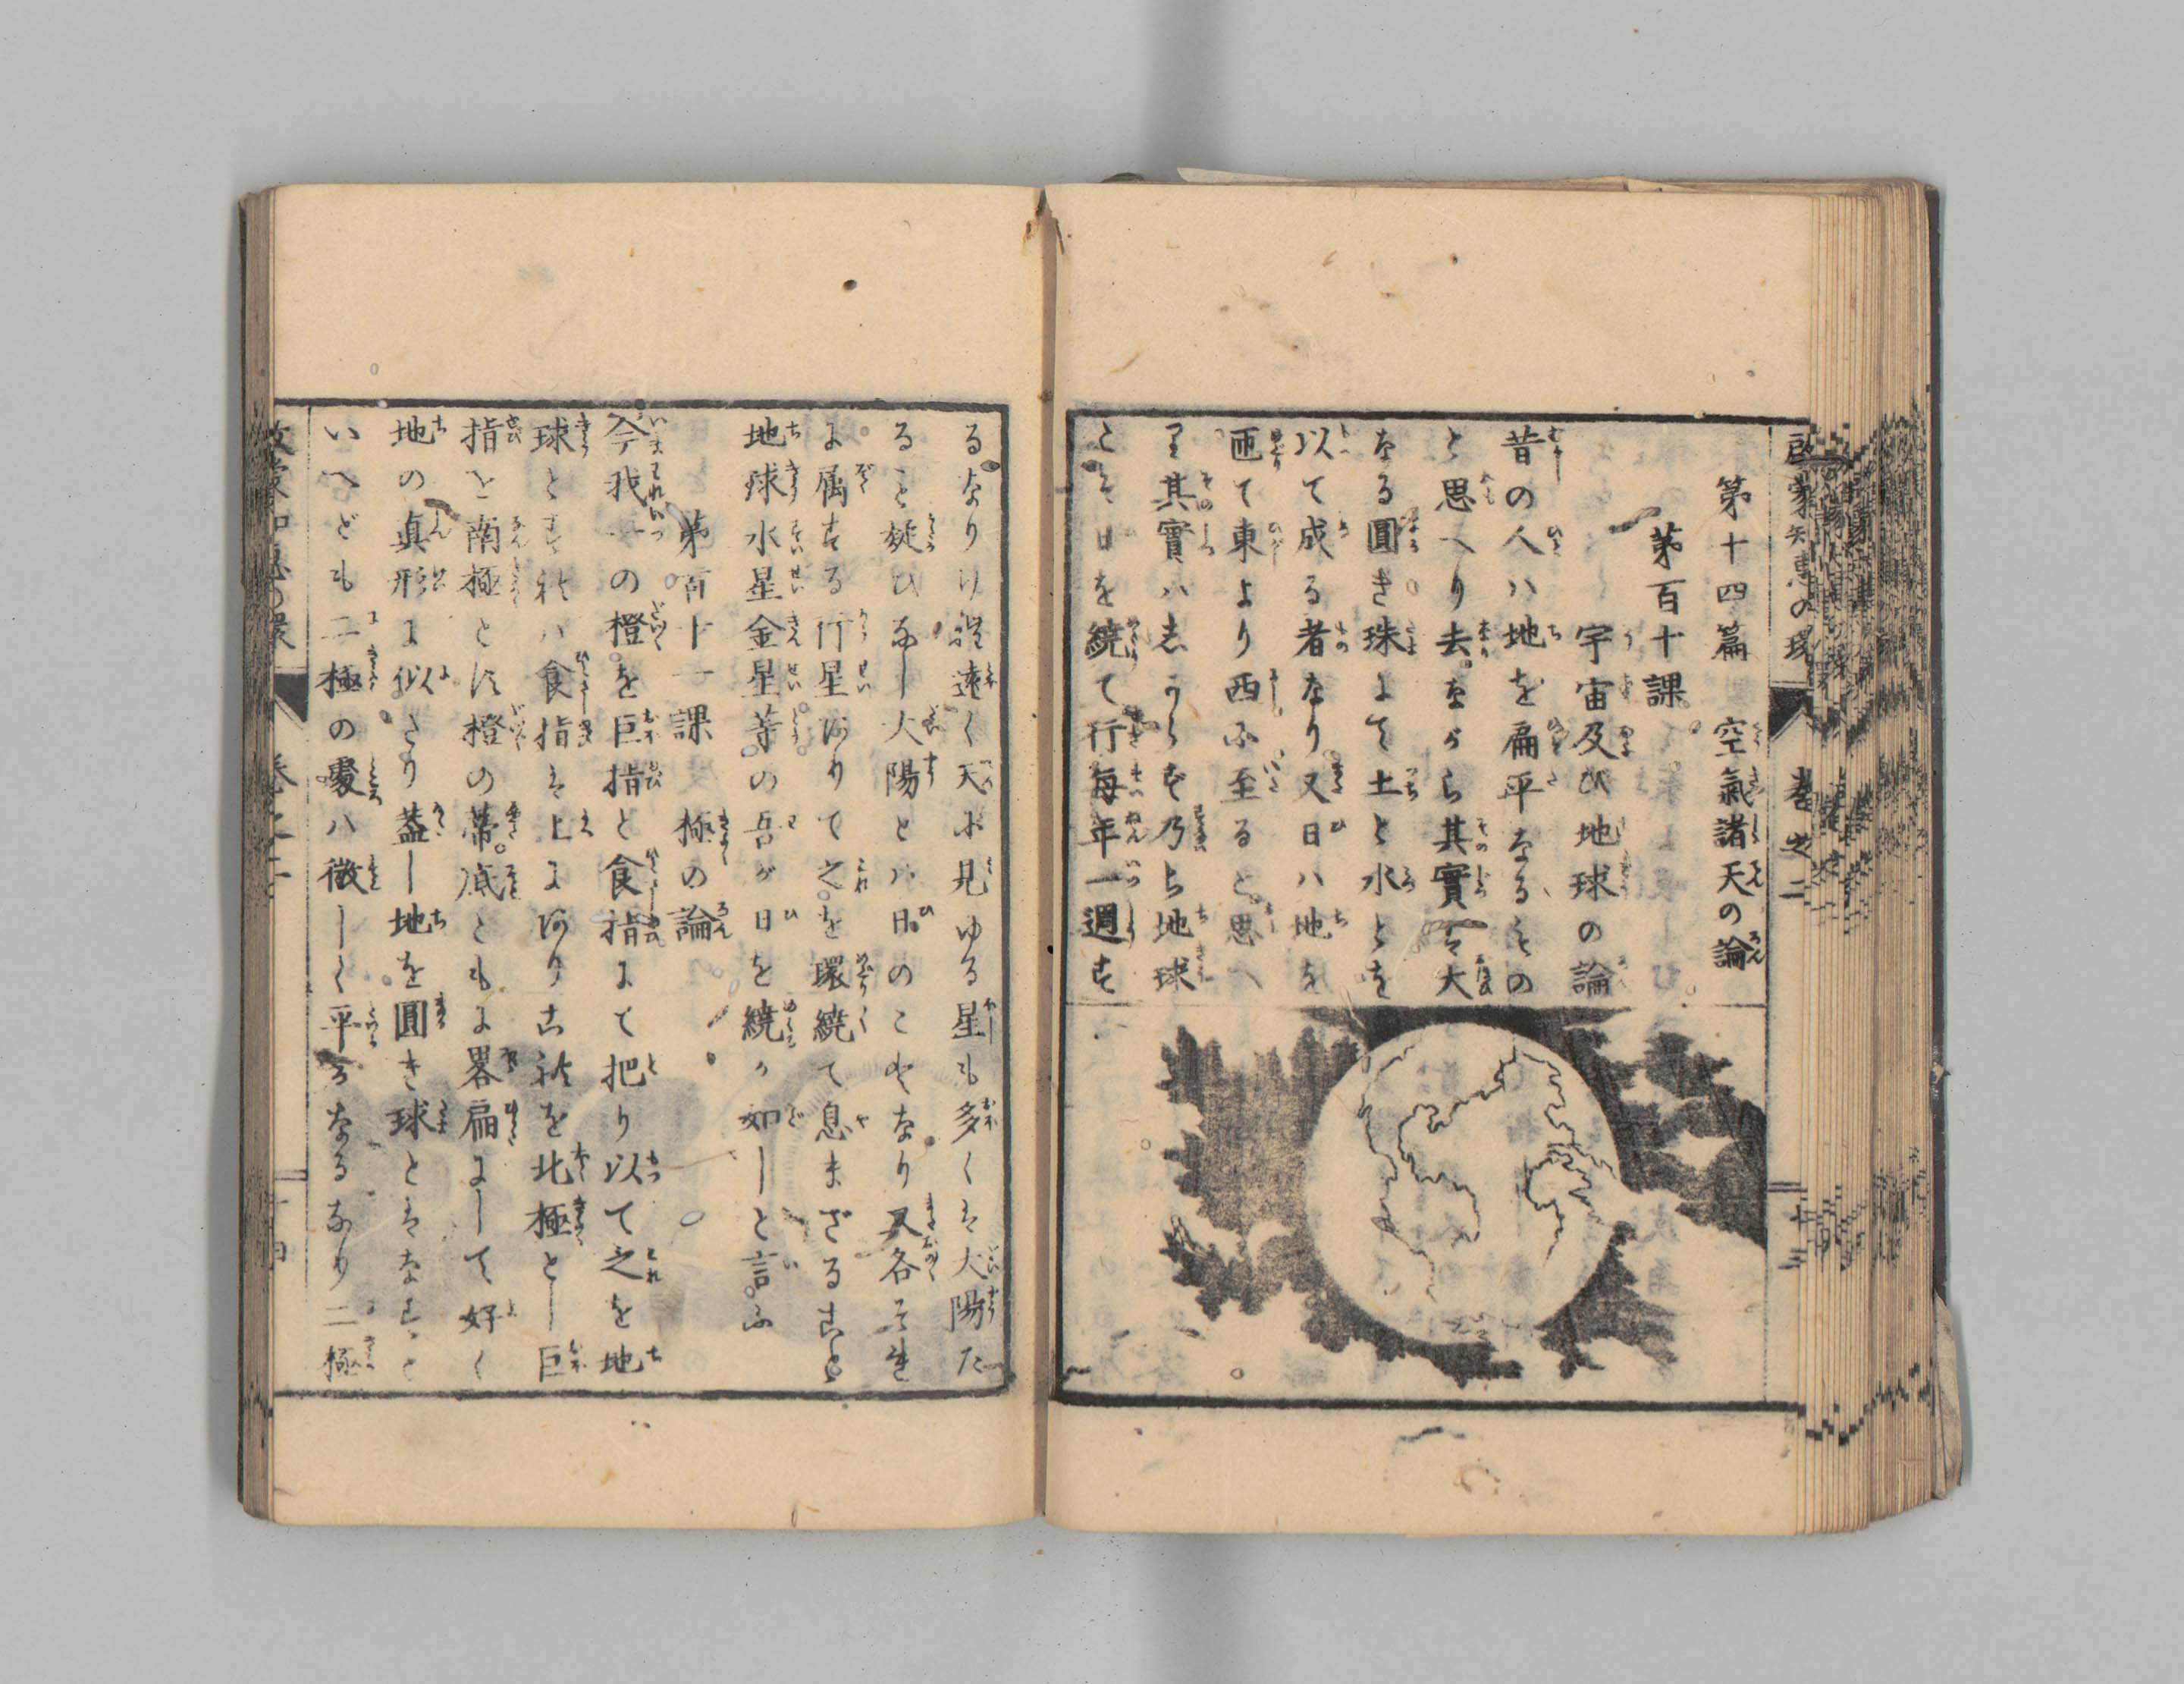 啟蒙知恵の環 巻之二 十三
第十四篇 空氣諸天の論
第百十課
宇宙及び地球の論
昔の人ハ地を扁平なるもの
と思へり去ながら其實ハ大
なる圓き珠にて土と水とを
以て成る者なり又日ハ地を
匝て東より西に至ると思へ
り其實ハ志からず乃ち地球
こそ日を繞て行毎年一週す
るなり 遠く天に見ゆる星も多くは大陽た
ること疑ひなし大陽とハ日のことなり又各
に属する行星ありて之を環繞て息まざること
地球水星金星等の吾が日を繞るが如しと言ふ
第百十一課 極の論
今我一の橙を巨指と食指にて把り以て之を地
球とすれハ食指は上にあり之れを北極とし巨
指を南極とす橙の蒂底ともに畧扁にして好く
地の真形に似たり蓋し地を圓き球とはなすと
いへども二極の處ハ微しく平々なるなり二極